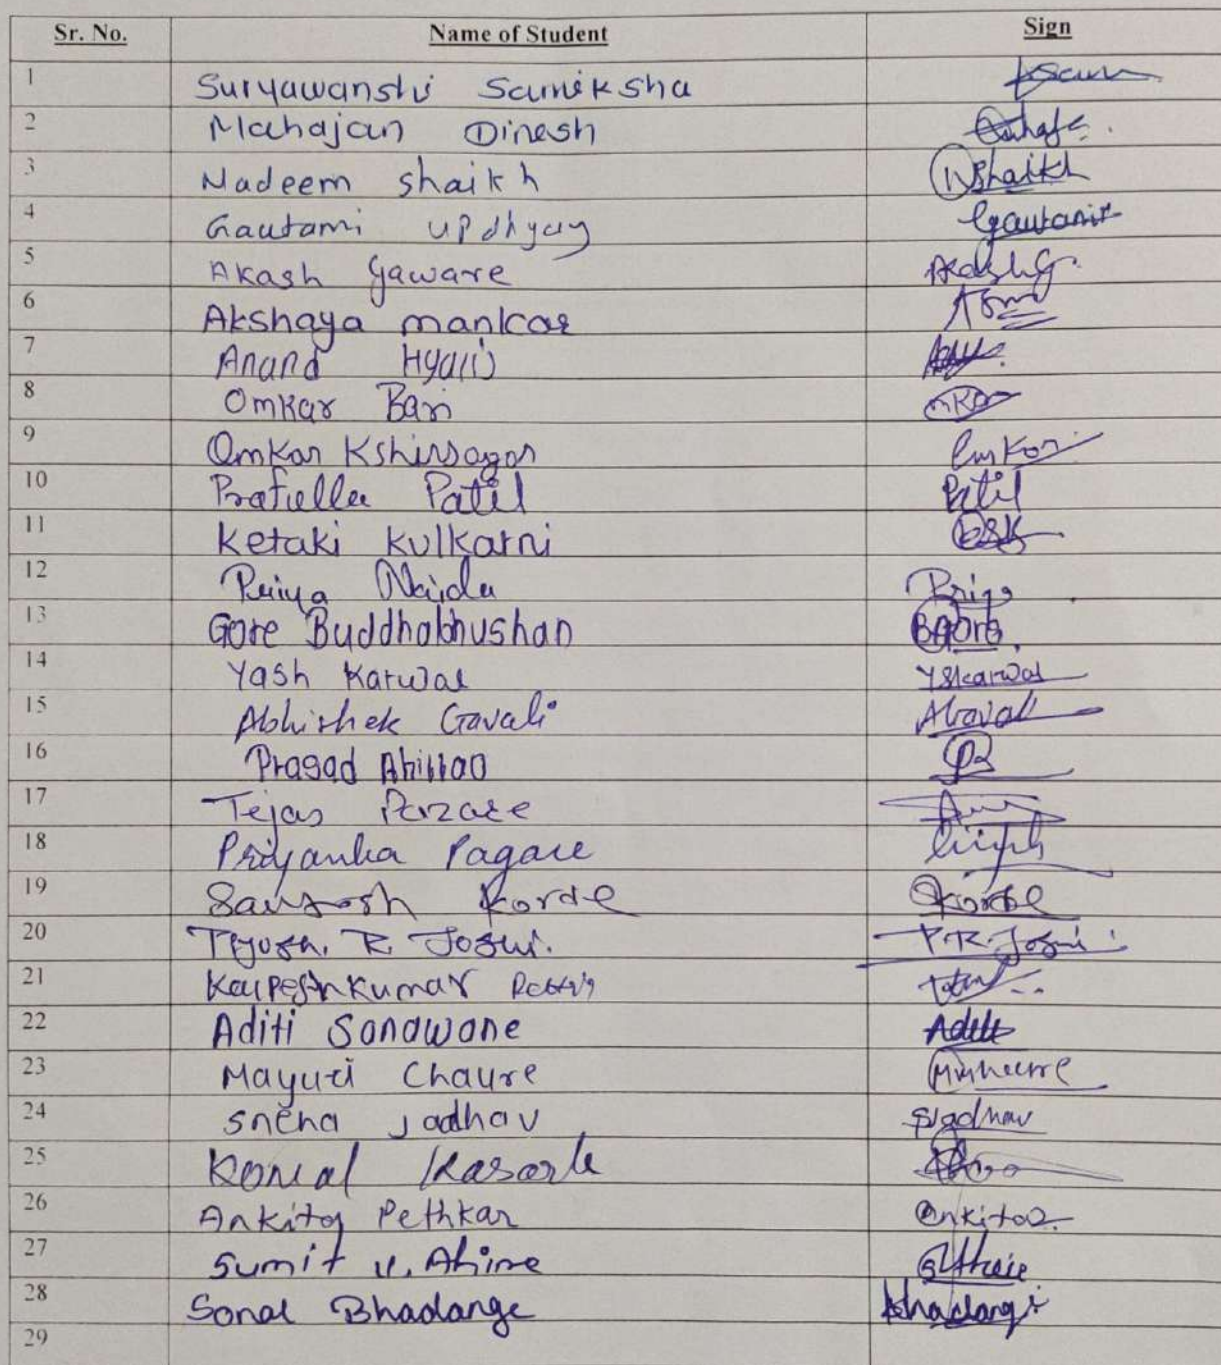 Sr. No. Name of Student Sign
1 Suryawanshi Samiksha
2 Mahajan Dinesh
3 Nadeem shaikh NShaikh
4 Gautami updhyay Gautami
5 Akash Gaware AkashG.
6 Akshaya mankar
7 Anand
8 Omkar Bari
9 Omkar Kshirsagar Omkar
10 Prafulla Patil Patil
11 Ketaki Kulkarni
12 Priya Naidu Priya
13 Gore Buddhabhushan BGore
14 Yash Karwal YSkarwal
15 Abhishek Gavali AGavali
16 Prasad Ahirrao
17 Tejas
18 Priyanka Pagare
19 Santosh Korde Korde
20 R. Joshi. P.R. Joshi
21 Kalpeshkumar
22 Aditi Sonawane Aditi
23 Mayuri Chaure
24 Sneha Jadhav SJadhav
25 Komal Kasarle
26 Ankita Pethkar Ankita
27 Sumit V. Ahire
28 Sonal Bhadange Bhadange
29